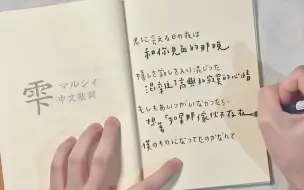 雫
マルシィ
中文歌詞
君に会える日の夜は
和你見面的那晚
嬉しさ寂しさ入り混じった
混雜著高興和寂寞的心情
もしもあいつがいなかったら
想著「如果那傢伙不存在
僕のものになってたのかなんて